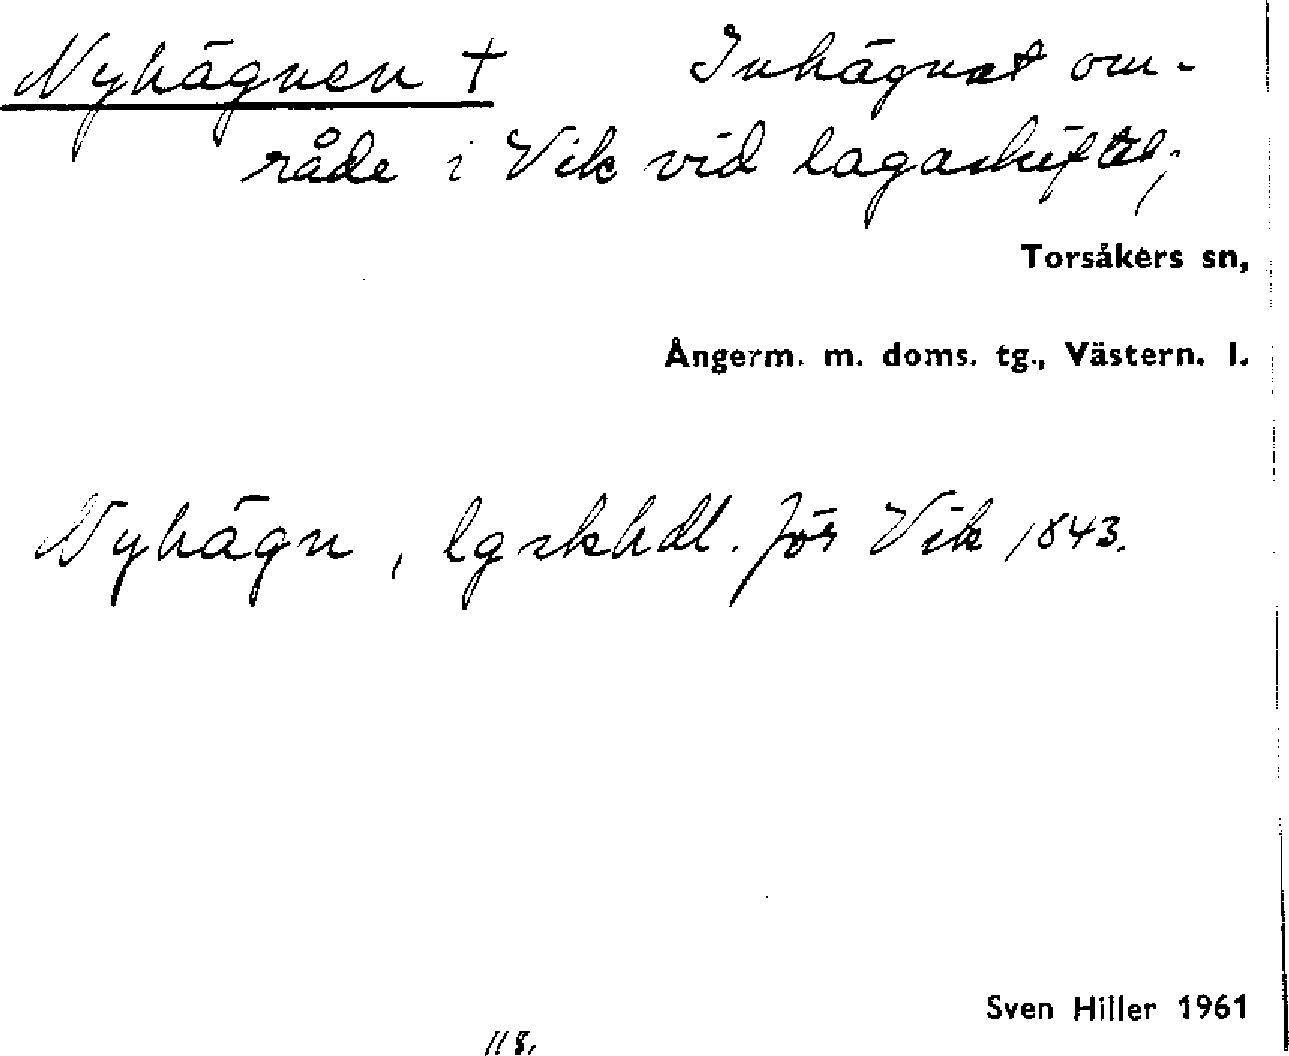 Nyhägnen † Inhägnat om-
råde i Vik vid lagaskiftet;
Torsåkers sn,
Ångerm. m. doms. tg., Västern. l.
Nyhägn, lgskhdl. för Vik 1843.
Sven Hiller 1961
118.